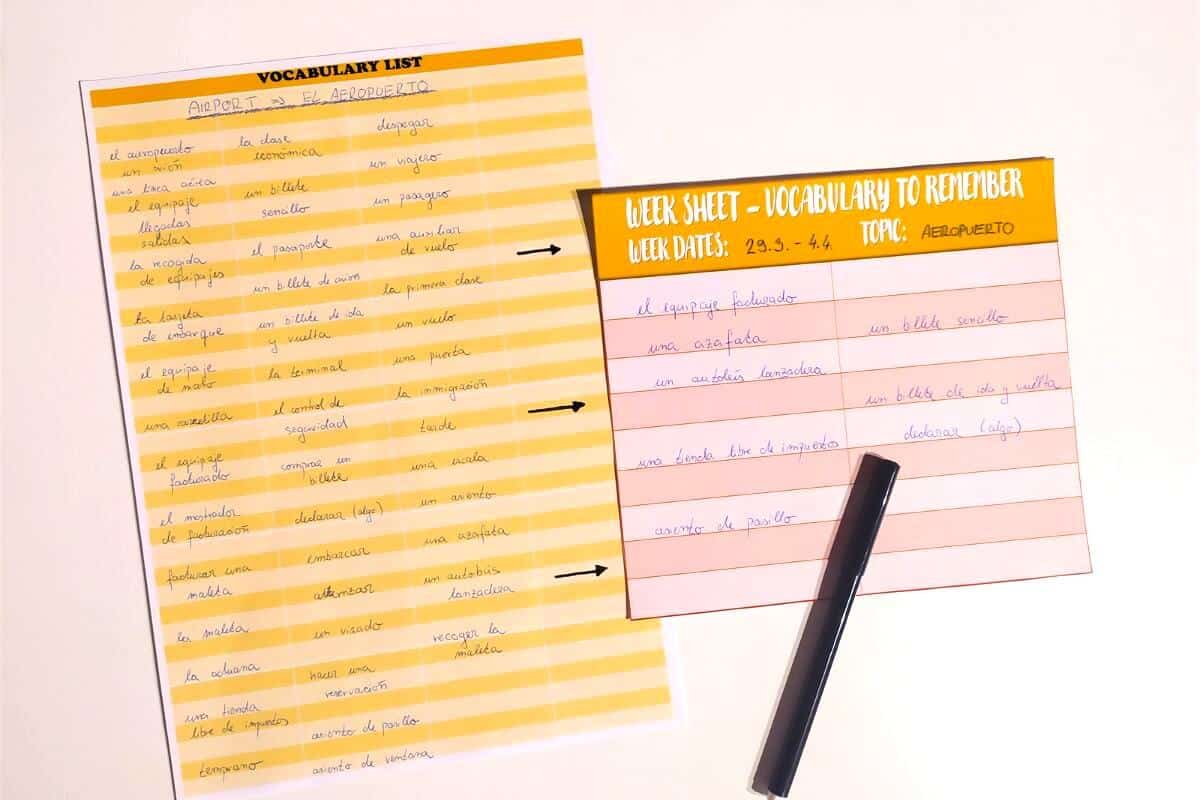 VOCABULARY LIST
AIRPORT => EL AEROPUERTO
el aeropuerto
un avión
una línea aérea
el equipaje
llegadas
salidas
la recogida
de equipajes
la tarjeta
de embarque
el equipaje
de mano
una carretilla
el equipaje
facturado
el mostrador
de facturación
facturar una
maleta
la maleta
la aduana
una tienda
libre de impuestos
temprano
la clase
económica
un billete
sencillo
el pasaporte
un billete de avión
un billete de ida
y vuelta
la terminal
el control de
seguridad
comprar un
billete
declarar (algo)
embarcar
un visado
hacer una
reservación
asiento de pasillo
asiento de ventana
despegar
un viajero
un pasagero
una auxiliar
de vuelo
la primera clase
un vuelo
una puerta
la inmigración
tarde
una escala
un asiento
una azafata
un autobús
lanzadera
recoger la
maleta
WEEK SHEET - VOCABULARY TO REMEMBER
WEEK DATES: 29.3. - 4.4. TOPIC: AEROPUERTO
el equipaje facturado
una azafata
un autobús lanzadera
una tienda libre de impuestos
asiento de pasillo
un billete sencillo
un billete de ida y vuelta
declarar (algo)